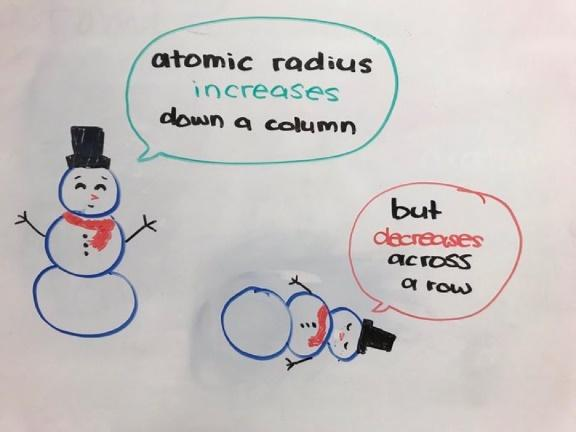 atomic radius
increases
down a column
but
decreases
across
a row